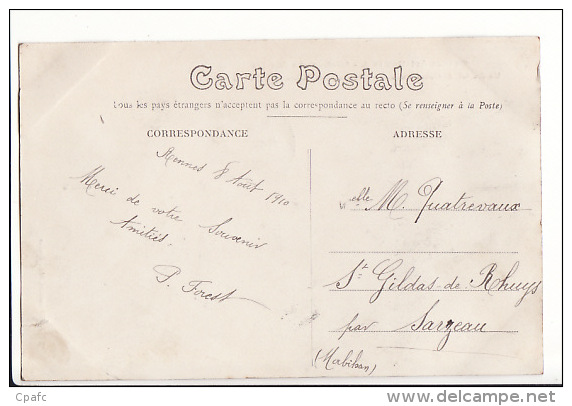 Carte Postale
Tous les pays étrangers n'acceptent pas la correspondance au recto (Se renseigner à la Poste)
CORRESPONDANCE
ADRESSE
Rennes 8 Août 1910
Merci de votre Souvenir
Amitiés.
P. Forest
Melle M. Quatrevaux
St Gildas-de-Rhuys
par Sarzeau
(Morbihan)
Cpafc
delcampe.net